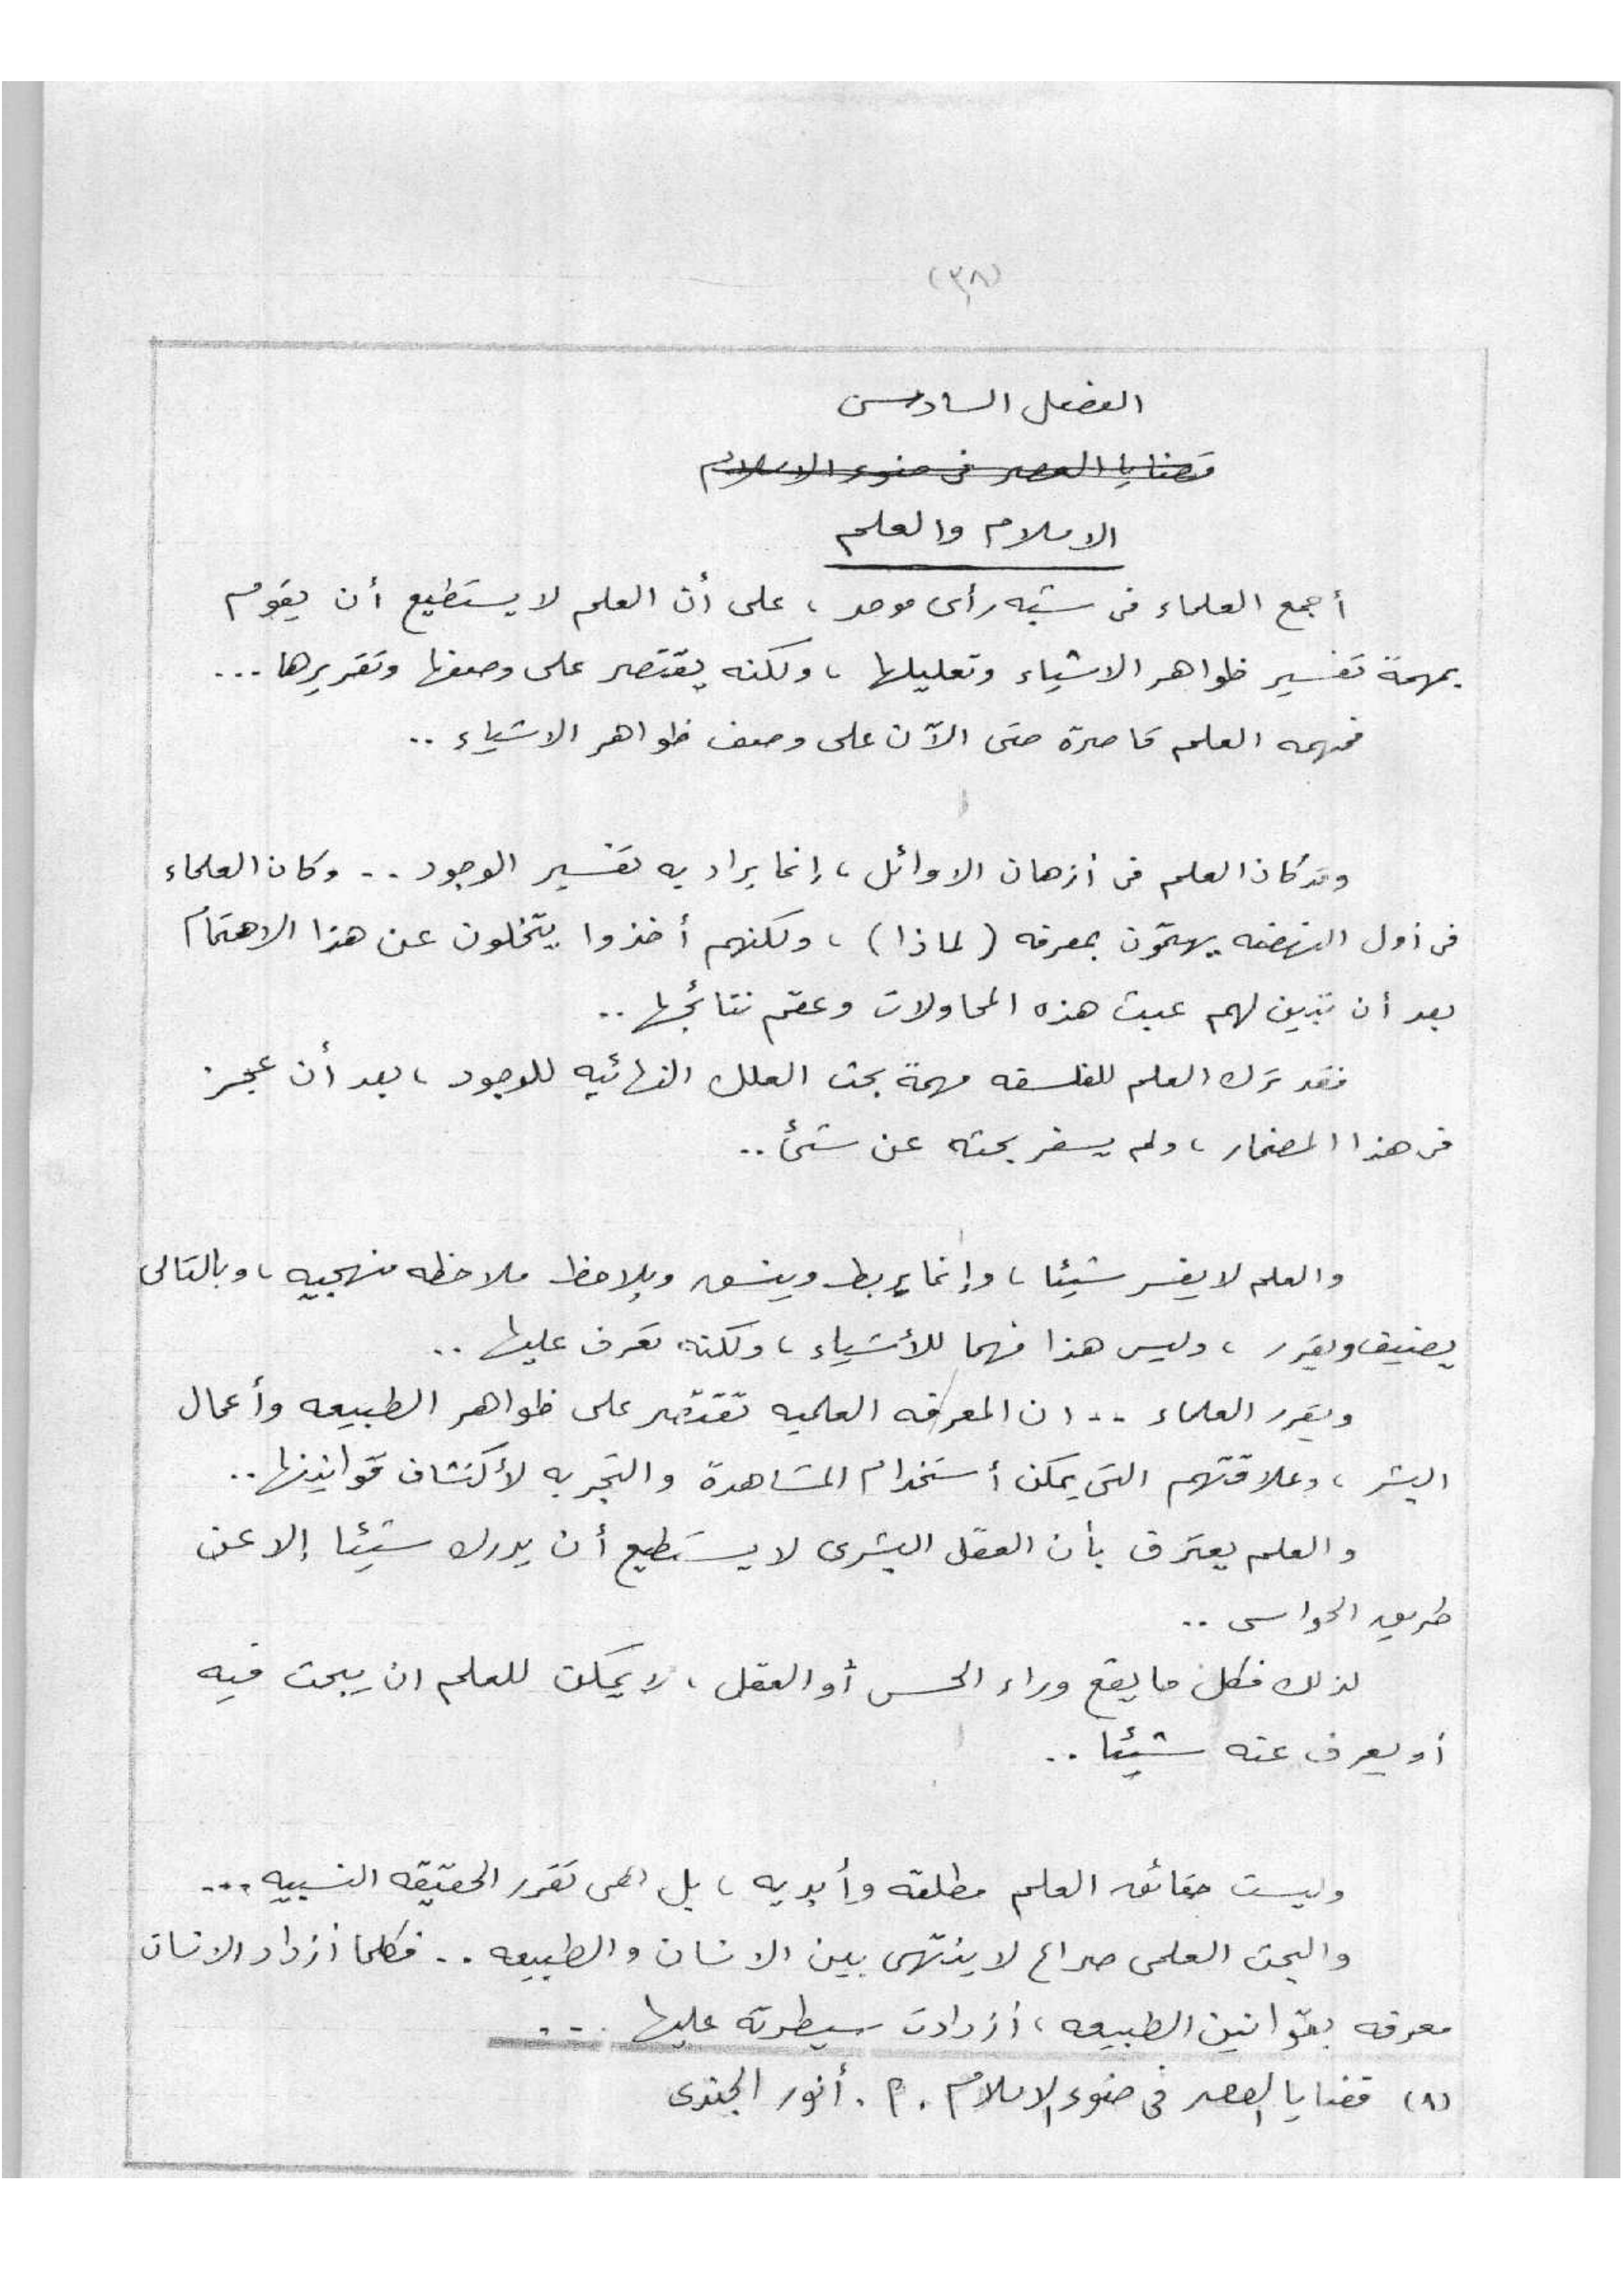 (٣٨)
الفصل السادس
قضايا العصر فى ضوء الاسلام
الاسلام والعلم
أجمع العلماء فى شبه رأى موحد ، على أن العلم لا يستطيع أن يقوم
بمهمة تفسير ظواهر الاشياء وتعليلها ، ولكنه يقتصر على وصفها وتقريرها ...
فمهمه العلم قاصرة حتى الآن على وصف ظواهر الاشياء ..
وقد كان العلم فى أزهان الاوائل ، إنما يراد به تفسير الوجود .. وكان العلماء
فى أول النهضه يهتمّون بمعرفه ( لماذا ) ، ولكنهم أخذوا يتخلون عن هذا الاهتمام
بعد أن تبين لهم عبث هذه المحاولات وعقم نتائجها ..
فقد ترك العلم للفلسفه مهمة بحث العلل النهائيه للوجود ، بعد أن عجز
فى هذا المضمار ، ولم يسفر بحثه عن شئ ..
والعلم لا يفسر شيئا ، وإنما يربط وينسق ويلاحظ ملاحظه منهجيه ، وبالتالى
يضيف ويقرر ، وليس هذا فهما للأشياء ، ولكنه تعرف عليها ..
ويقرر العلماء .. ان المعرفه العلميه تقتصر على ظواهر الطبيعه وأعمال
البشر ، وعلاقتهم التى يمكن أستخدام المشاهدة والتجربه لأكتشاف قوانينها ..
والعلم يعترف بأن العقل البشرى لا يستطيع أن يدرك شيئا إلا عن
طريق الحواس ..
لذلك فكل ما يقع وراء الحس أو العقل ، لا يمكن للعلم ان يبحث فيه
أو يعرف عنه شيئا ..
وليست حقائق العلم مطلقه وأبديه ، بل هى تقرر الحقيقه النسبيه ...
والبحث العلمى صراع لا ينتهى بين الانسان والطبيعه .. فكلما أزداد الانسان
معرفه بقوانين الطبيعه ، أزدادت سيطرته عليها ...
(٨) قضايا العصر فى ضوء الاسلام . م . أنور الجندى